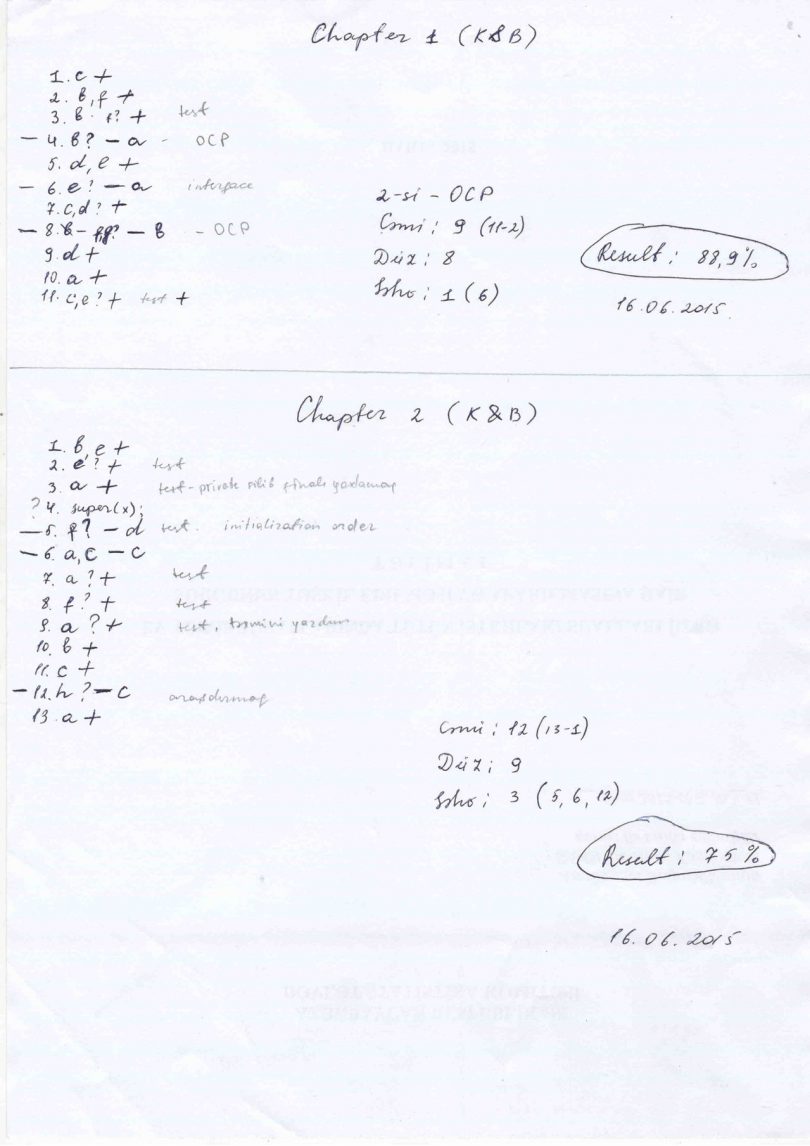 Chapter 1 (K&B)
1. c +
2. b, f +
3. b - f? + test
– 4. b? – a - OCP
5. d, e +
– 6. e? – a interface
7. c, d? +
– 8. b – – b - OCP
9. d +
10. a +
11. c, e? + test +
2-si – OCP
Cəmi : 9 (11-2)
Düz : 8
Səhv : 1 (6)
Result : 88,9%
16.06.2015.
Chapter 2 (K&B)
1. b, e +
2. e? + test
3. a + test - private
? 4. super(x);
– 5. f? – d test. initialization order
– 6. a, c – c
7. a? + test
8. f? + test
9. a? + test,
10. b +
11. c +
– 12. h? – c araşdırmaq
13. a +
Cəmi : 12 (13-1)
Düz : 9
Səhv : 3 (5, 6, 12)
Result : 75%
16.06.2015